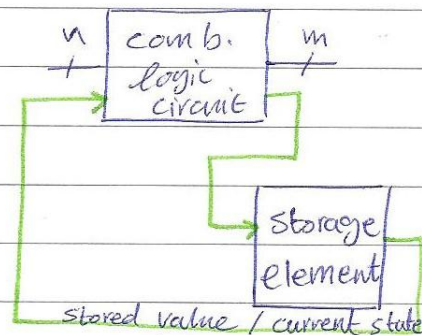 n
m
comb.
logic
circuit
storage
element
stored value / current state